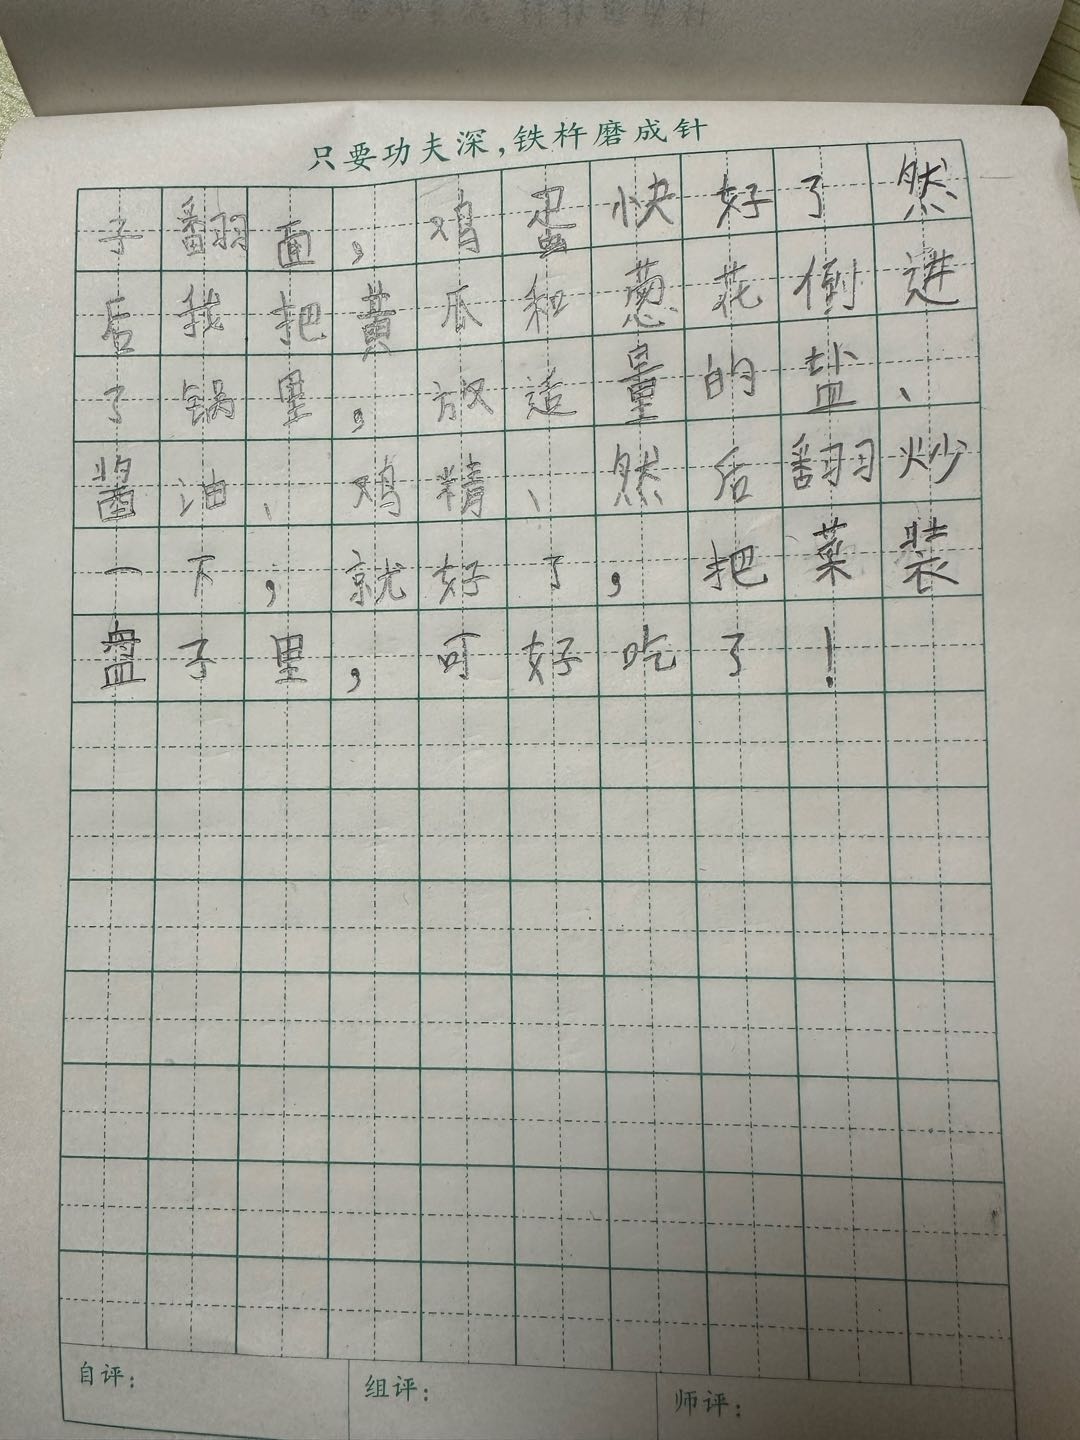 只要功夫深,铁杵磨成针
子翻面，鸡蛋快好了然
后我把黄瓜和葱花倒进
了锅里，放适量的盐、
酱油、鸡精、然后翻炒
一下，就好了，把菜装
盘子里，可好吃了！
自评：
组评：
师评：